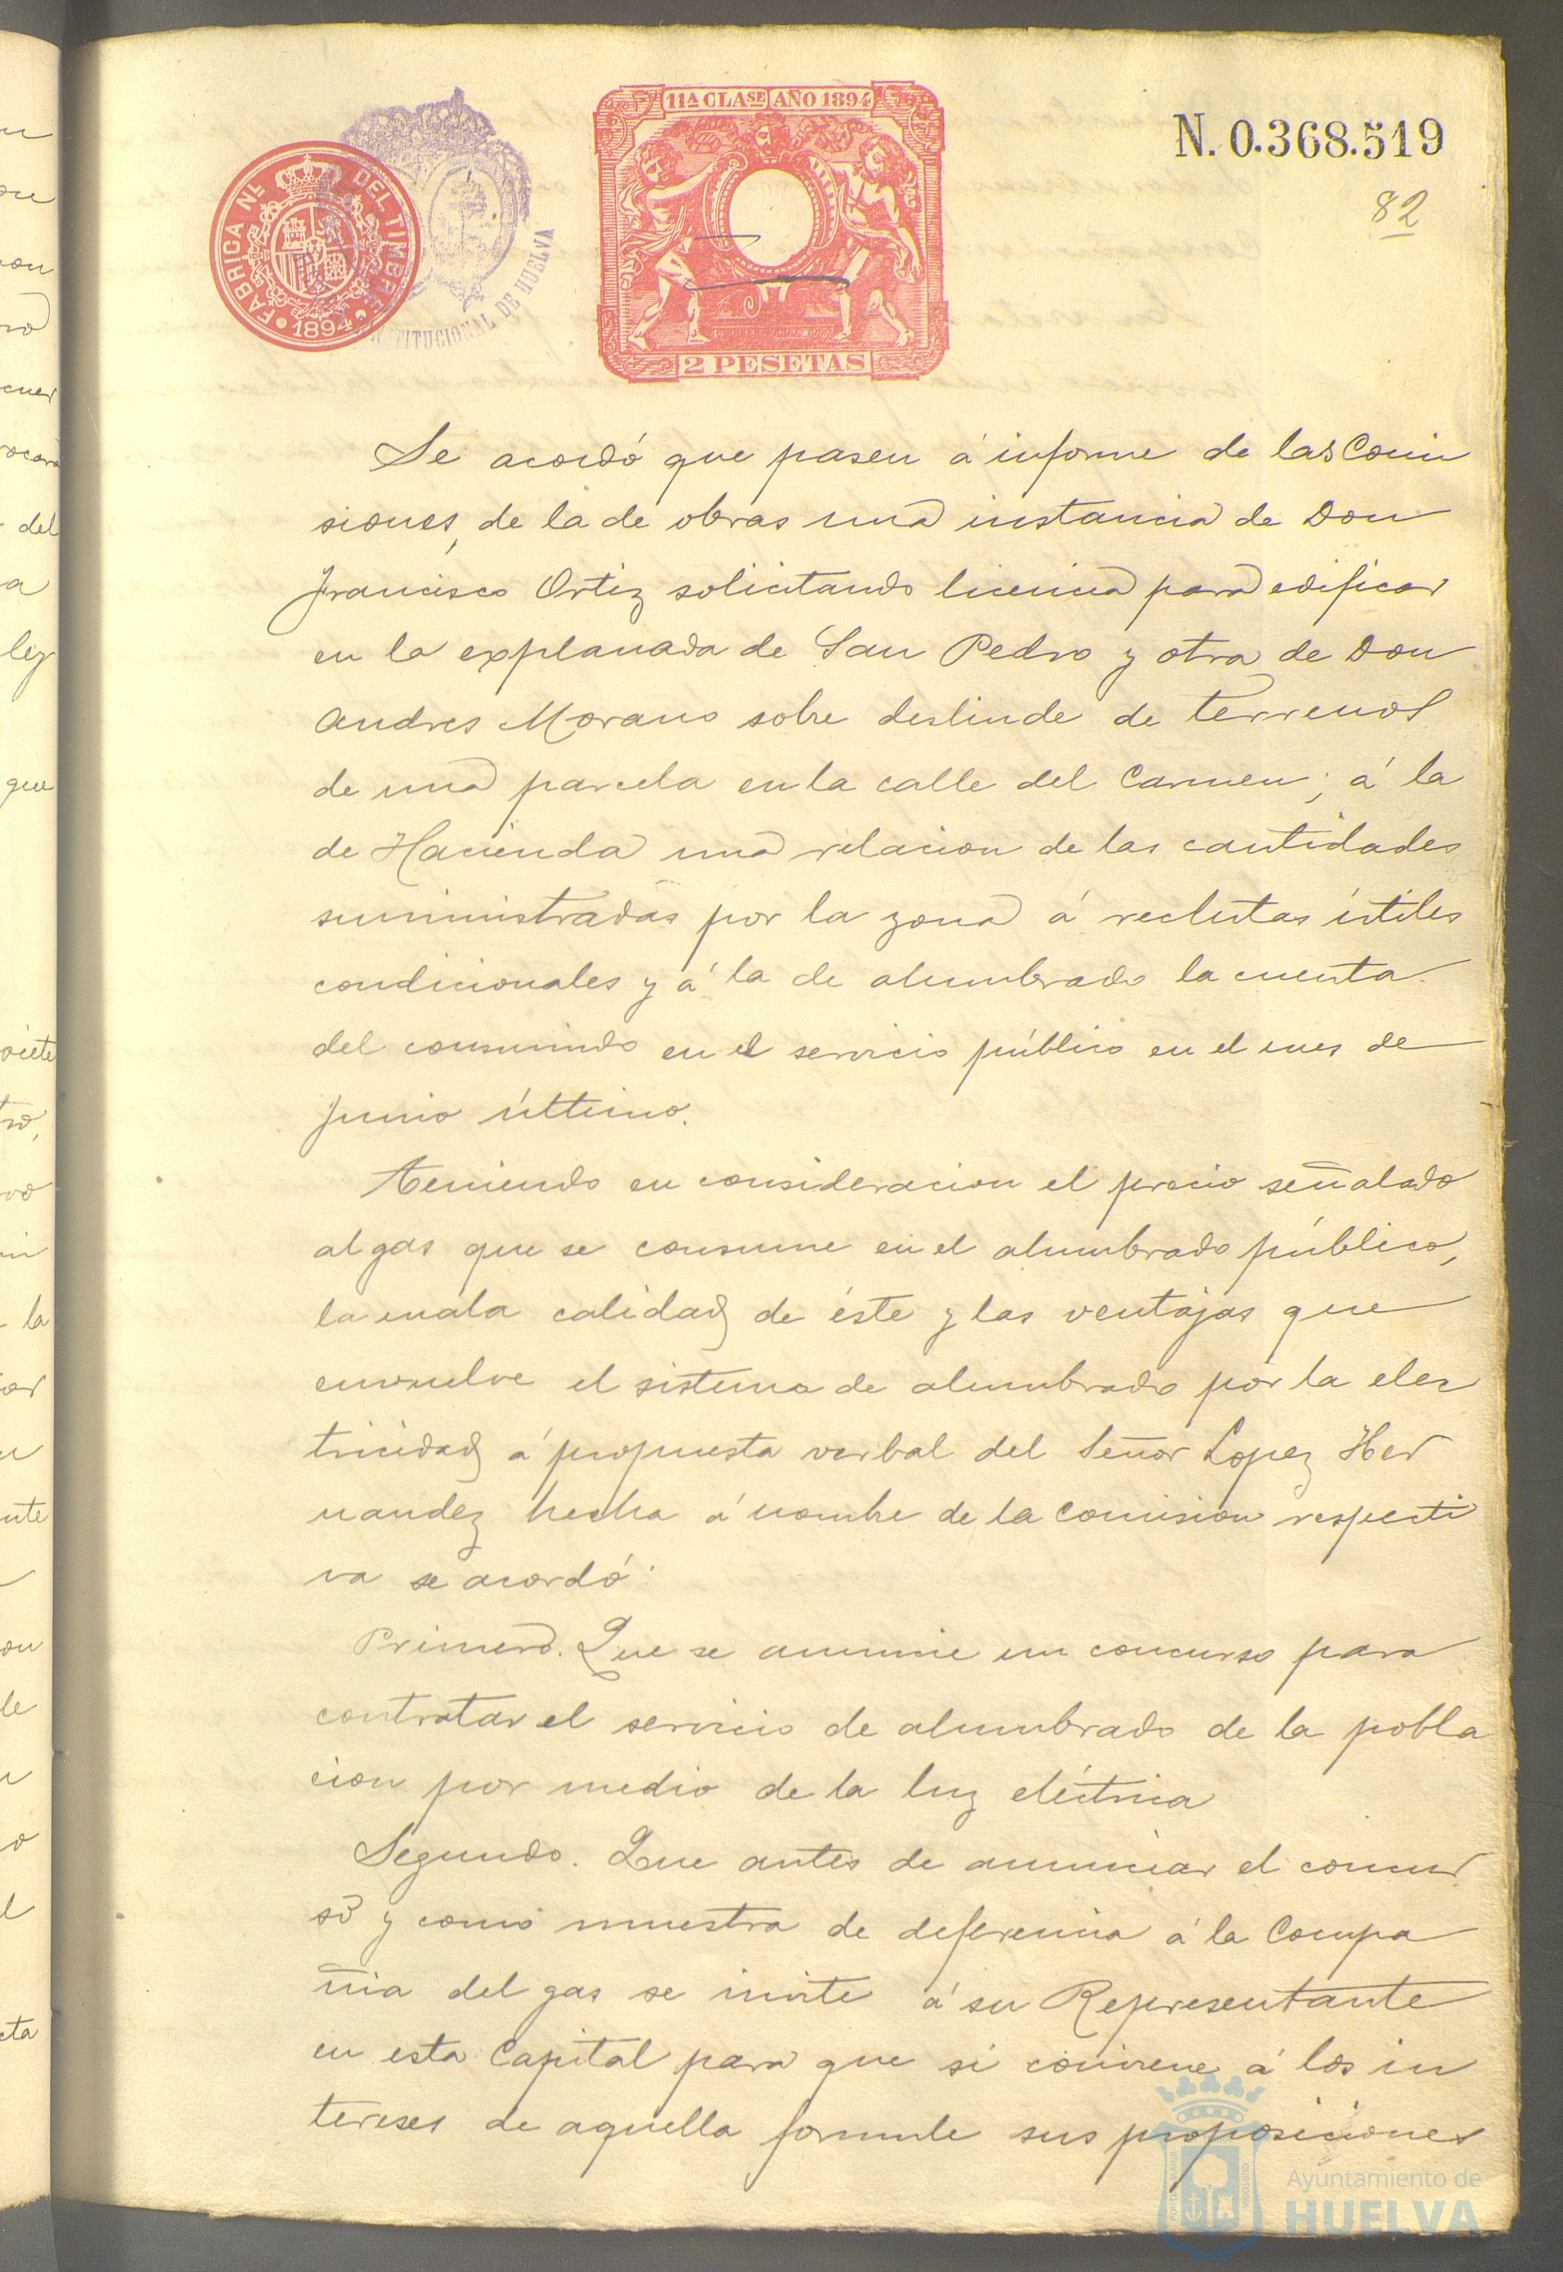 11ª CLASE AÑO 1894
N. 0.368.519
82
FABRICA NL. DEL TIMBRE
1894
TITUCIONAL DE HUELVA
2 PESETAS
Se acordó que pasen á informe de las Comi
siones, de la de obras una instancia de Don
Francisco Ortiz solicitando licencia para edificar
en la explanada de San Pedro y otra de Don
Andres Morano sobre deslinde de terrenos
de una parcela en la calle del Carmen; á la
de Hacienda una relacion de las cantidades
suministradas por la zona á reclutas útiles
condicionales y á la de alumbrado la cuenta
del consumido en el servicio público en el mes de
Junio último.
Teniendo en consideracion el precio señalado
al gas que se consume en el alumbrado público,
la mala calidad de éste y las ventajas que
envuelve el sistema de alumbrado por la elec
tricidad á propuesta verbal del Señor Lopez Her
nandez hecha á nombre de la Comision respecti
va se acordó:
Primero. Que se anuncie un concurso para
contratar el servicio de alumbrado de la pobla
cion por medio de la luz eléctrica
Segundo. Que antes de anunciar el concur
so y como muestra de deferencia á la Compa
ñia del gas se invite á su Representante
en esta Capital para que si conviene á los in
tereses de aquella formule sus proposiciones
Ayuntamiento de
HUELVA